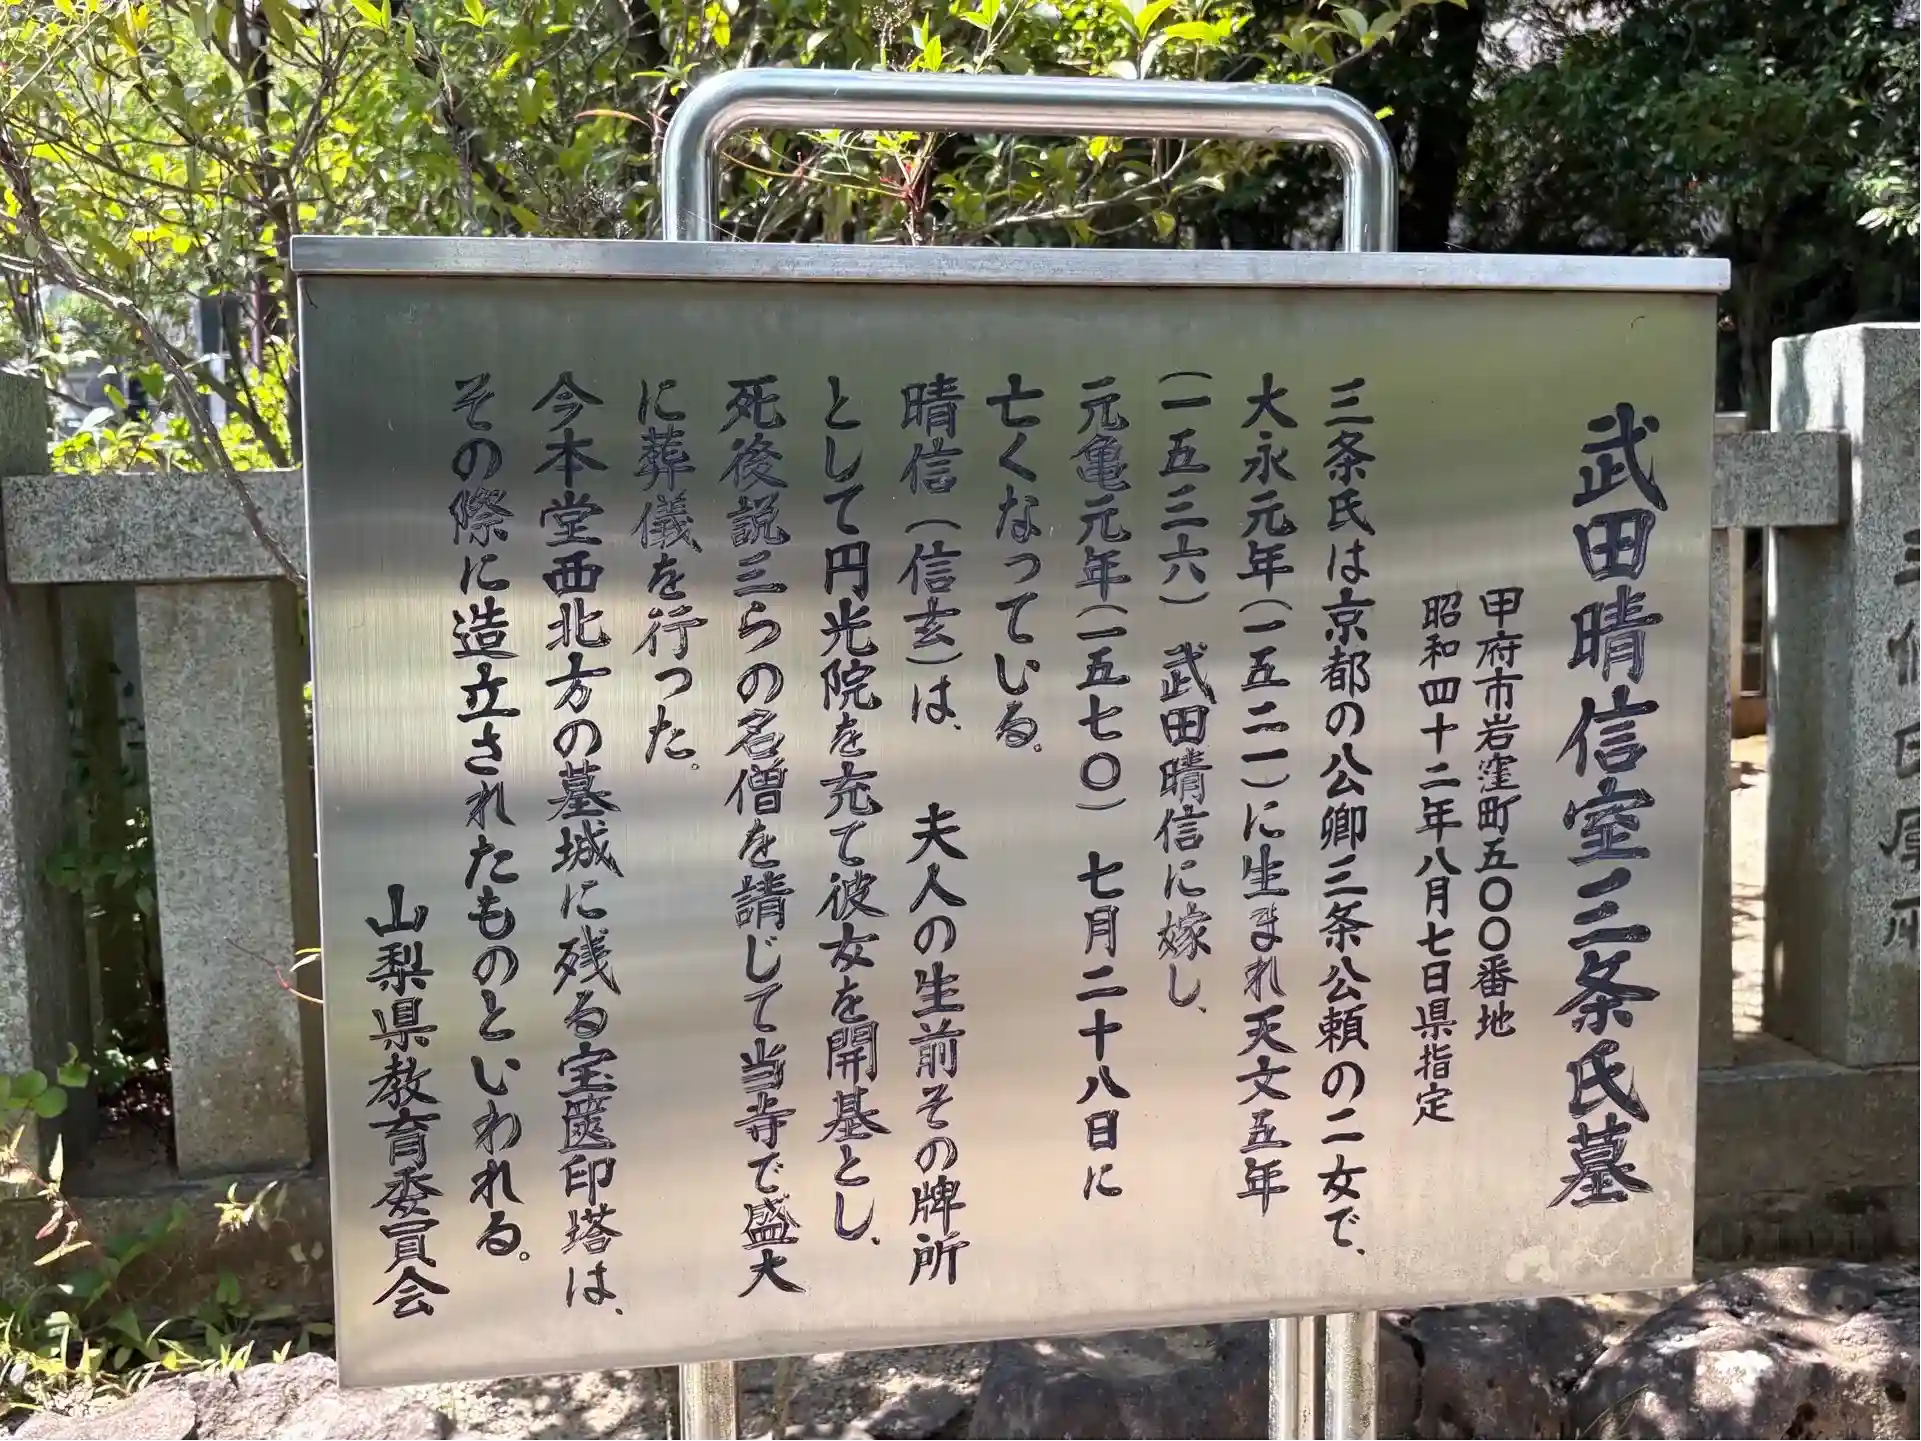 武田晴信室三条氏墓
甲府市岩窪町五〇〇番地
昭和四十二年八月七日県指定
三条氏は京都の公卿三条公頼の二女で、
大永元年(一五二一)に生まれ天文五年
(一五三六) 武田晴信に嫁し、
元亀元年(一五七〇) 七月二十八日に
亡くなっている。
晴信(信玄)は、 夫人の生前その牌所
として円光院を充て彼女を開基とし、
死後説三らの名僧を請じて当寺で盛大
に葬儀を行った。
今本堂西北方の墓城に残る宝篋印塔は、
その際に造立されたものといわれる。
山梨県教育委員会